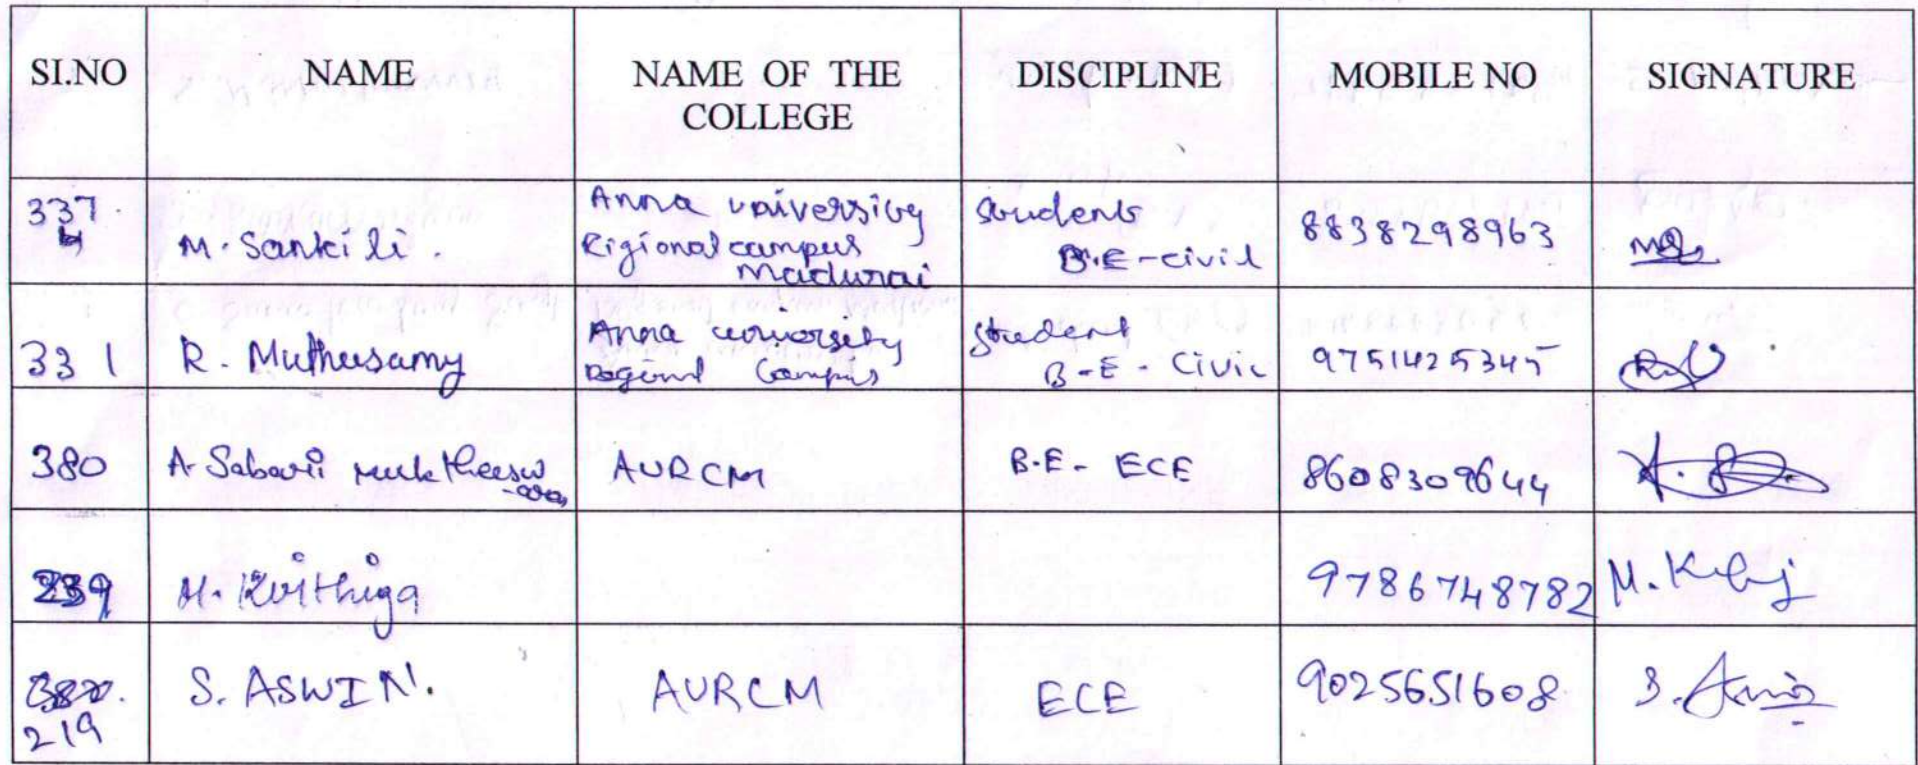 SI.NO NAME NAME OF THE COLLEGE DISCIPLINE MOBILE NO SIGNATURE
337. M. Sankili. Anna university Rigional campus Madurai Students B.E - civil 8838298963
331 R. Muthusamy Anna university Campus Student B-E - Civil 9751425345
380 A. Sabari AURCM B.E - ECE 8608309644
239 M. 9786748782 M.
219 S. ASWIN. AURCM ECE 9025651608 S.